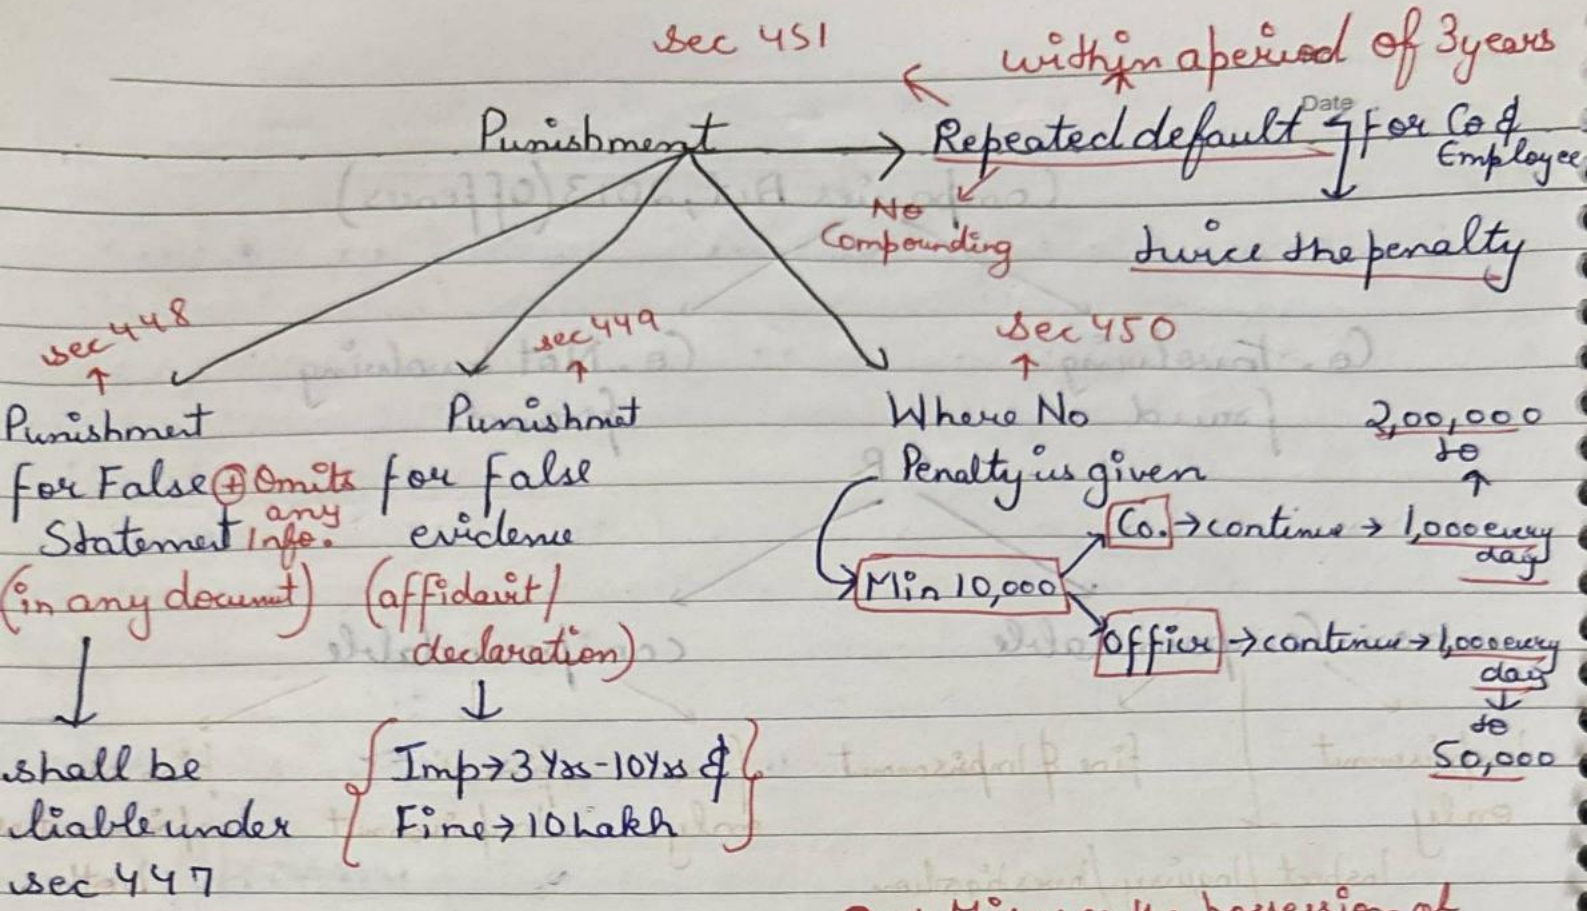 sec 451
within a period of 3 years
Date
Punishment → Repeated default → For Co &
Employee
No
Compounding
twice the penalty
sec 448
sec 449
sec 450
Punishment
for False ⊕ Omits
any
Statement Info.
(in any documnt)
shall be
liable under
sec 447
Punishmnt
for false
evidence
(affidavit/
declaration)
Imp → 3 Yrs - 10 Yrs &
Fine → 10 Lakh
Where No
Penalty is given
Min 10,000
Co. → continue → 1,000 every
day
to
2,00,000
Officer → continue → 1,000 every
day
to
50,000